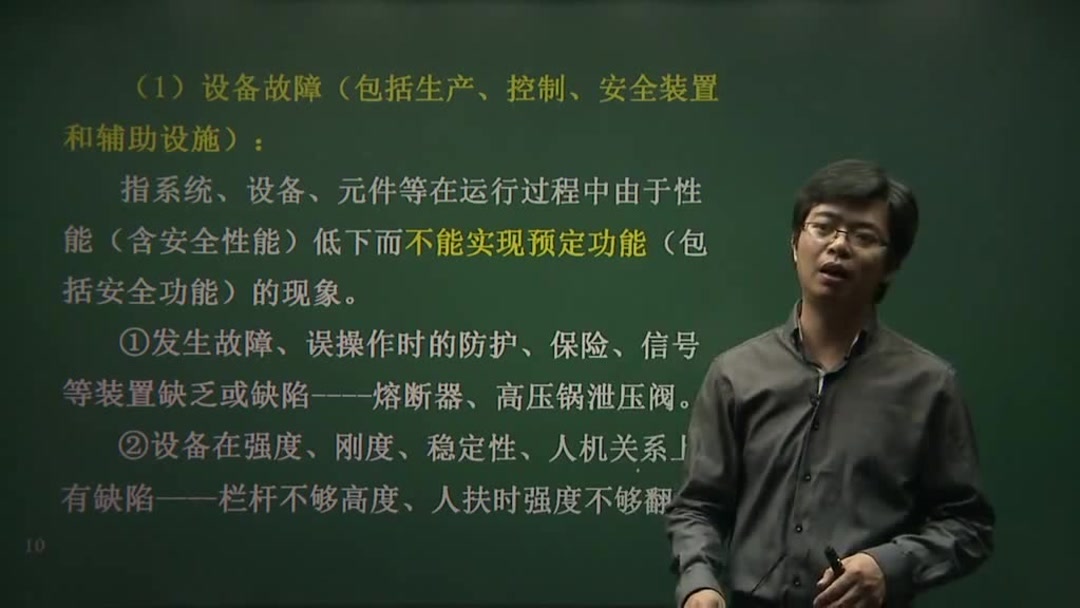 （1）设备故障（包括生产、控制、安全装置
和辅助设施）：
指系统、设备、元件等在运行过程中由于性
能（含安全性能）低下而不能实现预定功能（包
括安全功能）的现象。
①发生故障、误操作时的防护、保险、信号
等装置缺乏或缺陷----熔断器、高压锅泄压阀。
②设备在强度、刚度、稳定性、人机关系上
有缺陷——栏杆不够高度、人扶时强度不够翻
10